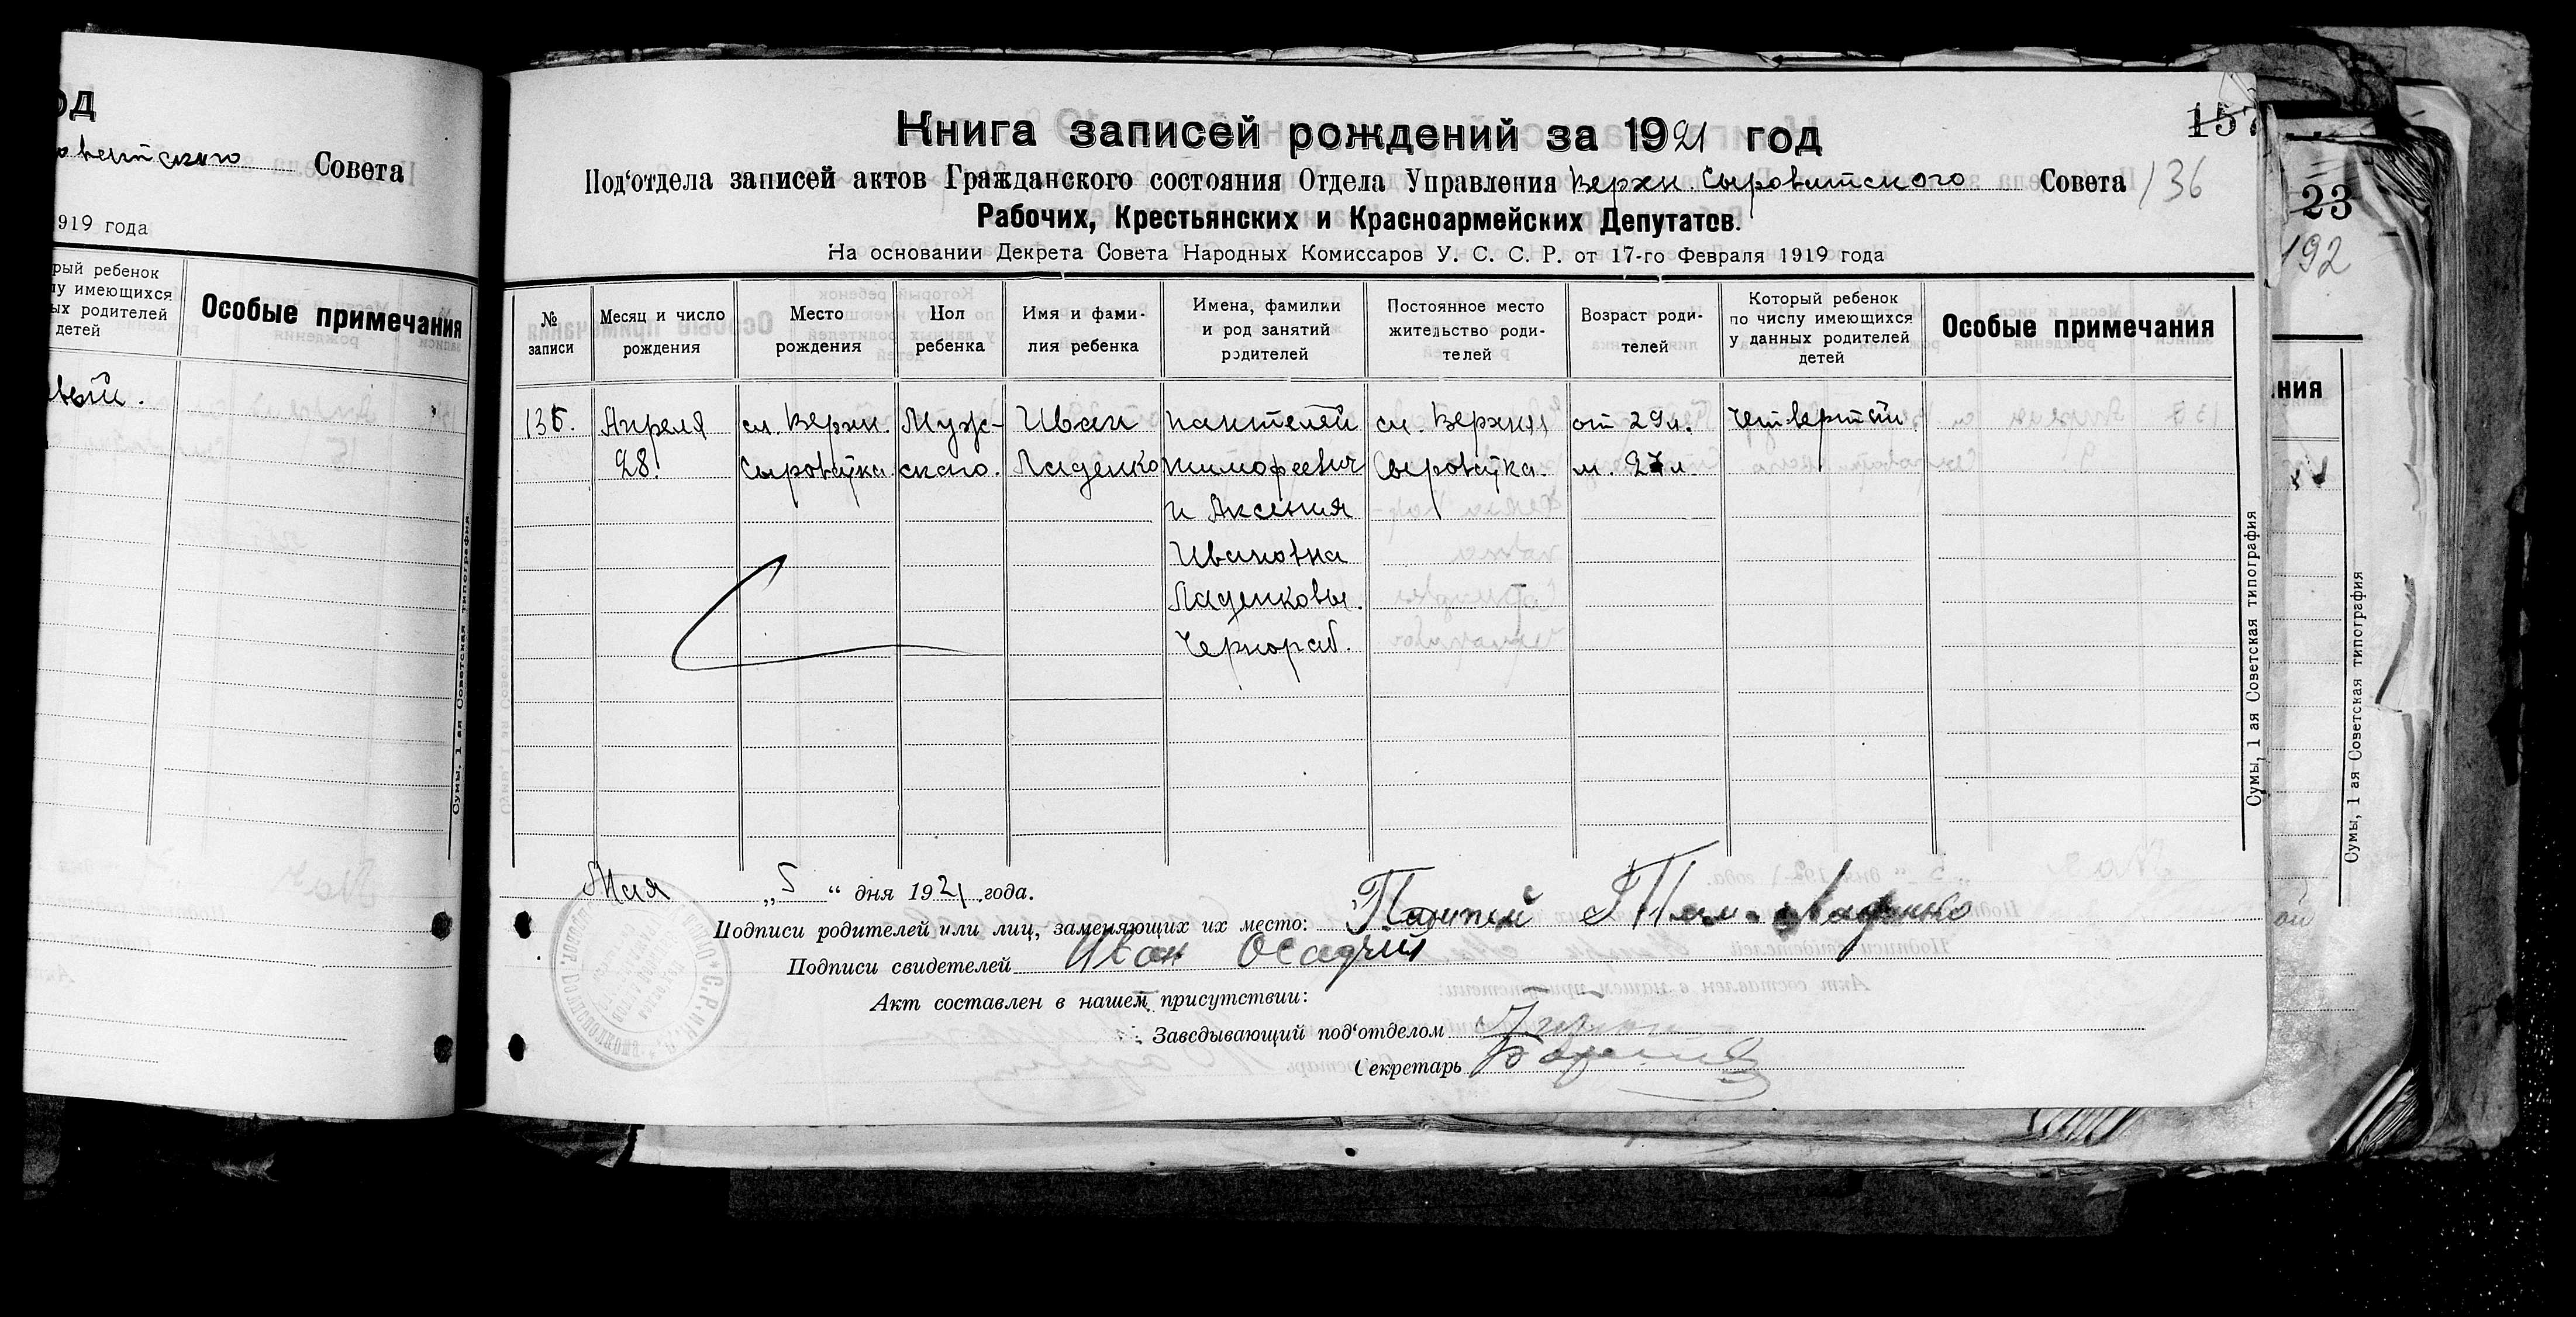 од
Совета
919 года
рый ребенок
лу имеющихся
ых родителей
детей
Особые примечания
вый.
Сумы, 1 ая Советская типография
Книга записей рождений за 1921 год
157
Под'отдела записей актов Гражданского состояния Отдела Управления Верхн. Сыроватского Совета
136
Рабочих, Крестьянских и Красноармейских Депутатов.
На основании Декрета Совета Народных Комиссаров У. С. С. Р. от 17-го Февраля 1919 года
№ записи
Месяц и число рождения
Место рождения
Пол ребенка
Имя и фами-
лия ребенка
Имена, фамилии
и род занятий
родителей
Постоянное место
жительство роди-
телей
Возраст роди-
телей
Который ребенок
по числу имеющихся
у данных родителей
детей
Особые примечания
136. Апреля сл. Верхн. Муж- Иван Пантелей сл. Верхняя от 29 л. Четвертый
28. Сыроватка. ского. Ладенко Тимофеевич Сыроватка. м. 27 л.
и Аксения
Ивановна
Ладенковы.
Чернораб.
Мая „ 5 “ дня 1921 года.
Подписи родителей или лиц, заменяющих их место: Ладенко
Подписи свидетелей Иван Осадчий
Акт составлен в нашем присутствии:
Заведывающий под'отделом
Секретарь
Сумы, 1 ая Советская типография
23
192
ния
Сумы, 1 ая Советская типография